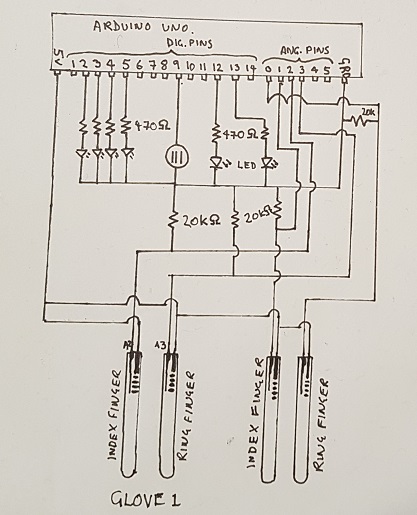 ARDUINO UNO.
DIG. PINS
ANG. PINS
5V 1 2 3 4 5 6 7 8 9 10 11 12 13 14 0 1 2 3 4 5 GRD
20k
470Ω
470Ω
LED
20kΩ
20kΩ
A2
A3
INDEX FINGER
RING FINGER
INDEX FINGER
RING FINGER
GLOVE 1